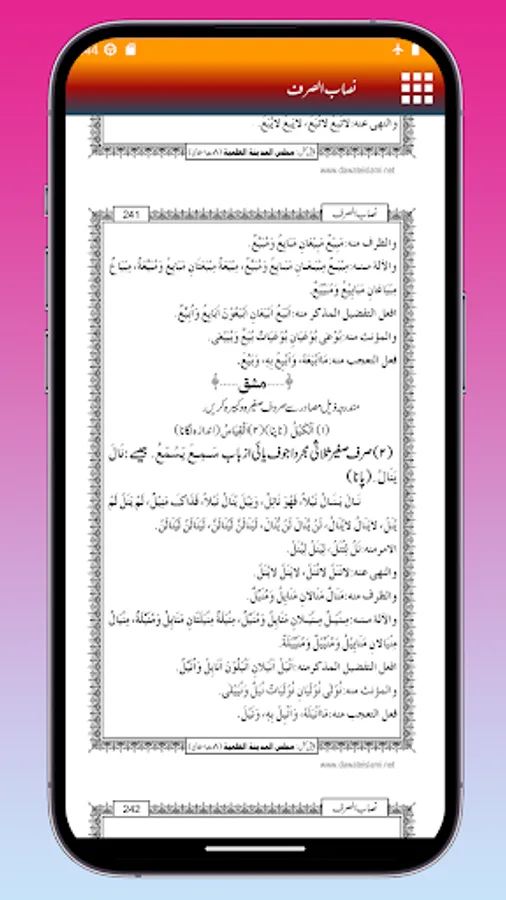 44
نصاب الصرف
والنهى عنه: لاتَبِعْ لاتُبَعْ، لايَبِعْ لايُبَعْ.
مجلس المدينة العلمية
www.dawateislami.net
241 نصاب الصرف
والظرف منه: مَبِيْعٌ مَبِيْعَانِ مَبَايِعُ وَمُبَيِّعٌ.
والآلة منه: مِبْيَعٌ مِبْيَعَانِ مَبَايِعُ وَمُبَيِّعٌ، مِبْيَعَةٌ مِبْيَعَتَانِ مَبَايِعُ وَمُبَيِّعَةٌ، مِبْيَاعٌ
مِبْيَاعَانِ مَبَايِيْعُ وَمُبَيِّيْعٌ.
افعل التفضيل المذكر منه: اَبْيَعُ اَبْيَعَانِ اَبْيَعُوْنَ اَبَايِعُ وَاُبَيِّعٌ.
والمؤنث منه: بُوْعٰى بُوْعَيَانِ بُوْعَيَاتٌ بُيَعٌ وَبُيَيْعٰى.
فعل التعجب منه: مَااَبْيَعَهٗ، وَاَبْيِعْ بِهٖ، وَبَيُعَ.
﴿----مشق----﴾
مندرجہ ذیل مصادر سے صروف صغیرہ و کبیرہ کریں۔
(۱) اَلْكَيْلُ (ناپنا) (۲) اَلْقِيَاسُ (اندازہ لگانا)
(۲) صرف صغیر ثلاثی مجرد اجوف یائی از باب سَمِعَ يَسْمَعُ. جیسے: نَالَ
يَنَالُ. (پانا)
نَالَ يَنَالُ نَيْلًا، فَهُوَ نَائِلٌ، وَنِيْلَ يُنَالُ نَيْلًا، فَذَاكَ مَنِيْلٌ، لَمْ يَنَلْ لَمْ
يُنَلْ، لايَنَالُ لايُنَالُ، لَنْ يَّنَالَ لَنْ يُّنَالَ، لَيَنَالَنَّ لَيُنَالَنَّ، لَيَنَالَنْ لَيُنَالَنْ.
الامر منه: نَلْ لِتُنَلْ، لِيَنَلْ لِيُنَلْ.
والنهى عنه: لاتَنَلْ لاتُنَلْ، لايَنَلْ لايُنَلْ.
والظرف منه: مَنَالٌ مَنَالانِ مَنَايِلُ وَمُنَيِّلٌ.
والآلة منه: مِنْيَلٌ مِنْيَلانِ مَنَايِلُ وَمُنَيِّلٌ، مِنْيَلَةٌ مِنْيَلَتَانِ مَنَايِلُ وَمُنَيِّلَةٌ، مِنْيَالٌ
مِنْيَالانِ مَنَايِيْلُ وَمُنَيِّيْلٌ وَمُنَيِّيْلَةٌ.
افعل التفضيل المذكر منه: اَنْيَلُ اَنْيَلانِ اَنْيَلُوْنَ اَنَايِلُ وَاُنَيِّلٌ.
والمؤنث منه: نُوْلٰى نُوْلَيَانِ نُوْلَيَاتٌ نُيَلٌ وَنُيَيْلٰى.
فعل التعجب منه: مَااَنْيَلَهٗ، وَاَنْيِلْ بِهٖ، وَنَيُلَ.
مجلس المدينة العلمية
www.dawateislami.net
242 نصاب الصرف